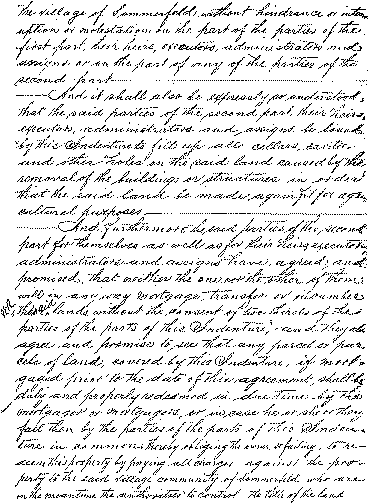 the village of Sommerfeld, without hindrance or inter-
uption or molestation on the part of the parties of the
first part, their heirs, executors, administrators and
assigns or on the part of any of the parties of the
second part
And it shall also be expressly so understood,
that the said parties of the second part, their heirs,
executors, administrators and assigns be bound
by this Indenture to fill up all cellars, cavities
and other holes on the said land caused by the
removal of the buildings or structures in order
that the said land be made again fit for agri-
cultural purposes
And furthermore the said parties of the second
part for themselves as well as for their heirs, executors
administrators and assigns have agreed and
promised, that neither the one nor the other of them
will in any way mortgage, transfer or incumber
these lands without the consent of two thirds of the
parties of the parts of this Indenture, and they also
agree and promise to see that any parcel or par-
cels of land, covered by this Indenture, if mort-
gaged prior to the date of this agreement, shall be
duly and properly redeemed in due time by the
mortgagor or mortgagors, or in case he or she or they
fail then by the parties of the parts of this Inden-
ture in common thereby obliging the owner so failing, to re-
deem this property by paying all charges against the pro-
perty to the said village community of Sommerfeld who are
in the meantime the authorities to control the title of the land